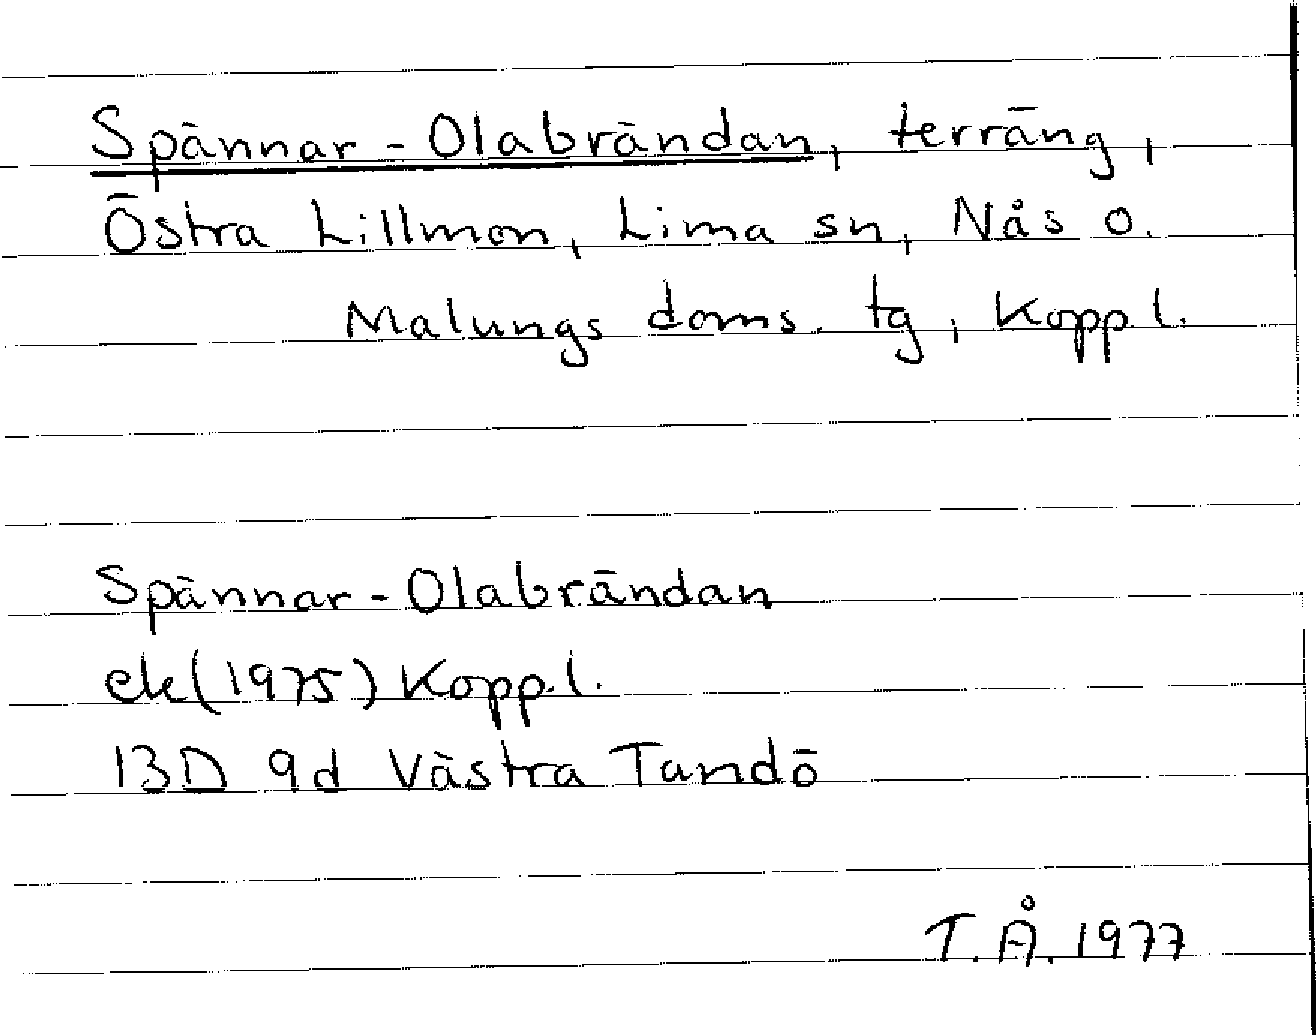 Spännar-Olabrändan, terräng,
Östra Lillmon, Lima sn, Nås o.
Malungs doms. tg, Kopp.l.
Spännar-Olabrändan
ek(1975) Kopp.l.
13D 9d Västra Tandö
T.Å. 1977